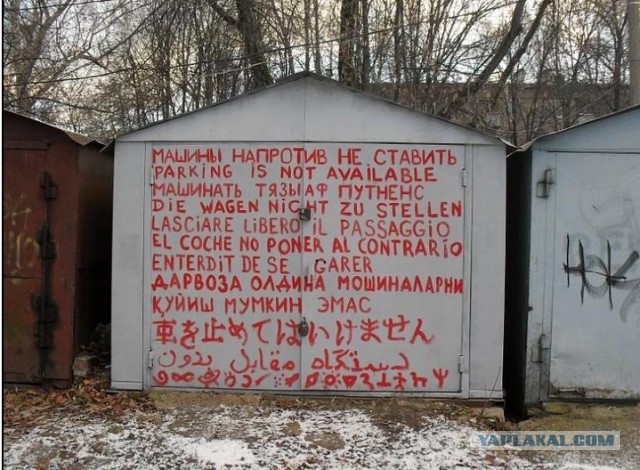 МАШИНЫ НАПРОТИВ НЕ СТАВИТЬ
PARKING IS NOT AVAILABLE
МАШИНАТЬ ТЯЗЫАФ ПУТНЕНС
DIE WAGEN NIGHT ZU STELLEN
LASCIARE LIBERO IL PASSAGGIO
EL COCHE NO PONER AL CONTRARIO
ENTERDIT DE SE GARER
ДАРВОЗА ОЛДИНА МОШИНАЛАРНИ
ҚУЙИШ МУМКИН ЭМАС
車を止めてはいけません
دستگاه مقابل بدون
YAPLAKAL.COM